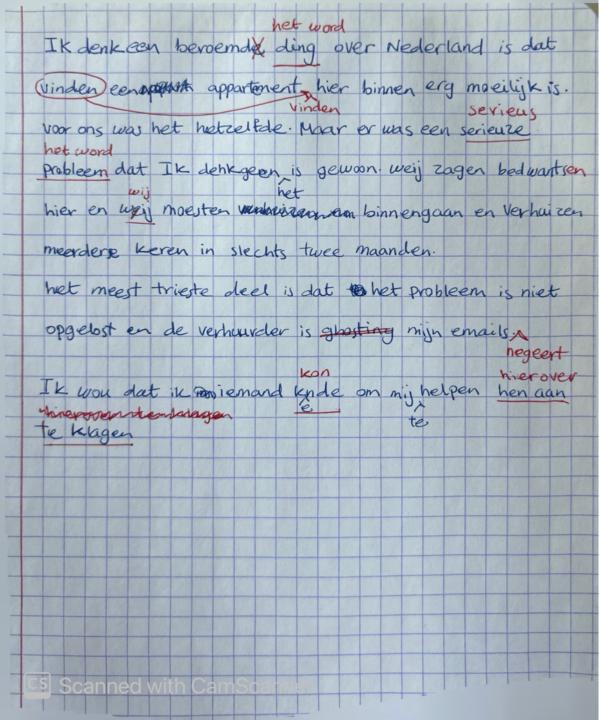 het word
Ik denk een beroemd ding over Nederland is dat
vinden een appartement hier binnen erg moeilijk is.
vinden serieus
voor ons was het hetzelfde. Maar er was een serieuze
het word
probleem dat Ik denk geen is gewoon. weij zagen bedwantsen
wij het
hier en weij moesten binnengaan en verhuizen
meerdere keren in slechts twee maanden.
het meest trieste deel is dat het probleem is niet
opgelost en de verhuurder is ghosting mijn emails
negeert
kon hierover
Ik wou dat ik iemand knde om mij helpen hen aan
e te
hierover te klagen
te klagen
CS Scanned with CamScanner